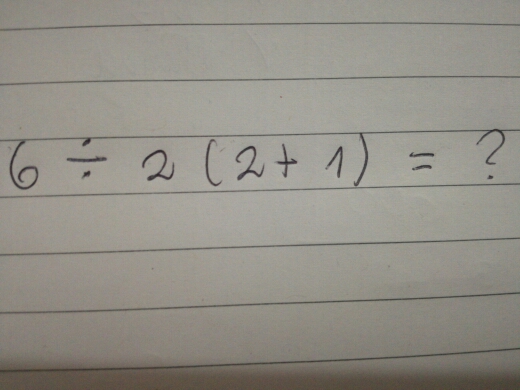 6 ÷ 2 (2+1) = ?